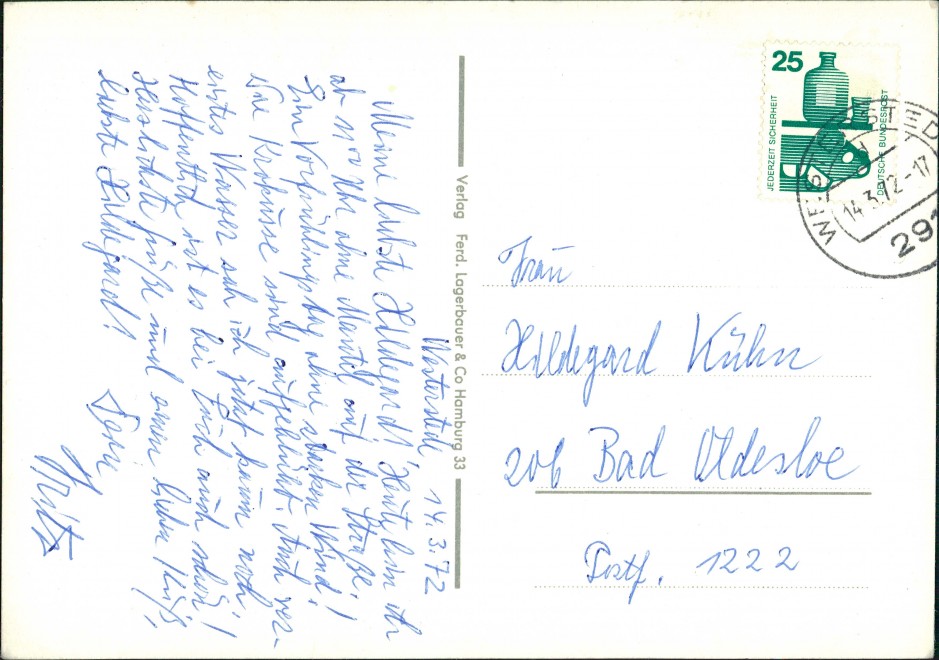 Westerstede, 14.3.72
Meine liebste Hildegard! Heute bin ich
ab 11 Uhr ohne Mantel auf der Straße!
Ein Vorfrühlingstag ohne starken Wind!
Die Krokusse sind aufgeblüht. Auch ver-
eistes Wasser sah ich jetzt kaum noch!
Hoffentlich ist es bei Euch auch schön!
Herzlichste Grüße und einen lieben Kuß,
liebste Hildegard! Dein
Fritz
Verlag Ferd. Lagerbauer & Co Hamburg 33
25
JEDERZEIT SICHERHEIT
DEUTSCHE BUNDESPOST
WESTERSTEDE
14.3.72-17
291
Frau
Hildegard Kühn
206 Bad Oldesloe
Postf. 1222